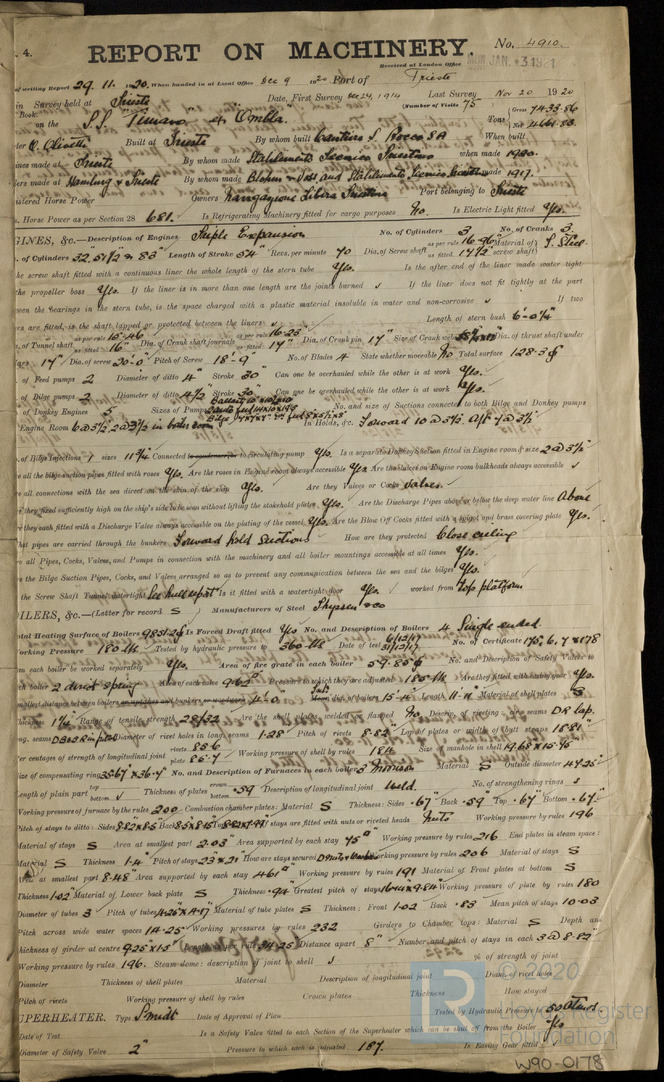 . 4. REPORT ON MACHINERY. No. 4910.
Received at London Office MON. JAN. 3 1921
of writing Report 29. 11. 1920. When handed in at Local Office Dec 9 1920 Port of Trieste
in Survey held at Trieste Date, First Survey Dec 24, 1914 Last Survey Nov 20 1920
Book. (Number of Visits 75
on the S.S. "Timavo" Tons Gross 7433.86 Net 4661.83
Built at Trieste By whom built Cantiere S. Rocco SA When built
ines made at Trieste By whom made Stabilimento Tecnico Triestino when made 1920.
lers made at Hamburg & Trieste By whom made Blohm & Voss and Stabilimento Tecnico when made 1917.
istered Horse Power Owners Navigazione Libera Triestina Port belonging to Trieste
. Horse Power as per Section 28 681. Is Refrigerating Machinery fitted for cargo purposes No. Is Electric Light fitted Yes.
GINES, &c.—Description of Engines Triple Expansion No. of Cylinders 3 No. of Cranks 3.
. of Cylinders 32, 51½ & 83" Length of Stroke 54" Revs. per minute 70 Dia. of Screw shaft as per rule 16.96 as fitted 17½" Material of screw shaft I. Steel
he screw shaft fitted with a continuous liner the whole length of the stern tube Yes. Is the after end of the liner made water tight
the propeller boss Yes. If the liner is in more than one length are the joints burned ✓ If the liner does not fit tightly at the part
ween the bearings in the stern tube, is the space charged with a plastic material insoluble in water and non-corrosive ✓ If two
rs are fitted, is the shaft lapped or protected between the liners ✓ Length of stern bush 6'-0¼"
. of Tunnel shaft as per rule 15.46 as fitted 16" Dia. of Crank shaft journals as per rule 16.23 as fitted 17" Dia. of Crank pin 17" Size of Crank webs Dia. of thrust shaft under
ars 17" Dia. of screw 20'-0" Pitch of Screw 18'-9" No. of Blades 4 State whether moveable No Total surface 128.3 ф
. of Feed pumps 2 Diameter of ditto 4" Stroke 30" Can one be overhauled while the other is at work Yes.
. of Bilge pumps 2 Diameter of ditto 4½" Stroke 30" Can one be overhauled while the other is at work Yes.
. of Donkey Engines 5 Sizes of Pumps No. and size of Suctions connected to both Bilge and Donkey pumps
Engine Room 6 @ 3½", 2 @ 3½ in boiler room In Holds, &c. Forward 10 @ 3½. Aft 7 @ 3½
. of Bilge Injections 1 sizes 11¾" Connected to circulating pump Yes. Is a separate Donkey Suction fitted in Engine room & size 2 @ 3½"
re all the bilge suction pipes fitted with roses Yes. Are the roses in Engine room always accessible Yes Are the sluices on Engine room bulkheads always accessible ✓
re all connections with the sea direct on the skin of the ship Yes. Are they Valves or Cocks Valves.
re they fixed sufficiently high on the ship's side to be seen without lifting the stokehold plates Yes. Are the Discharge Pipes above or below the deep water line Above
re they each fitted with a Discharge Valve always accessible on the plating of the vessel Yes. Are the Blow Off Cocks fitted with a spigot and brass covering plate Yes.
hat pipes are carried through the bunkers Forward hold Suctions How are they protected Close ceiling
re all Pipes, Cocks, Valves, and Pumps in connection with the machinery and all boiler mountings accessible at all times Yes.
re the Bilge Suction Pipes, Cocks, and Valves arranged so as to prevent any communication between the sea and the bilges Yes.
the Screw Shaft Tunnel watertight See hull report Is it fitted with a watertight door Yes. worked from Top platform
OILERS, &c.—(Letter for record S Manufacturers of Steel Thyssen & Co
otal Heating Surface of Boilers 9851.2 ф Is Forced Draft fitted Yes No. and Description of Boilers 4 Single ended.
orking Pressure 180 lb Tested by hydraulic pressure to 360 lb Date of test No. of Certificate 175, 6, 7 & 178
an each boiler be worked separately Yes. Area of fire grate in each boiler 59.85 ф No. and Description of Safety Valves to
ch boiler 2 direct spring Area of each valve 9.62" Pressure to which they are adjusted 185 lb Are they fitted with easing gear Yes.
mallest distance between boilers or uptakes and bunkers or woodwork 4'-0" dia. of boilers 15'-11" Length 11'-11" Material of shell plates S
Thickness 1 9/16 Range of tensile strength 28/32 Are the shell plates welded or flanged No Descrip. of riveting: cir. seams DR Lap.
ng. seams Diameter of rivet holes in long. seams 1.28" Pitch of rivets 8.82" Lap of plates or width of butt straps 18.81"
er centages of strength of longitudinal joint rivets 85.6 plate 85.7 Working pressure of shell by rules 184 Size of manhole in shell 19.68 x 15.75
ize of compensating ring 35.67 x 36.4" No. and Description of Furnaces in each boiler 3 Morison Material S Outside diameter 47.25"
Length of plain part top bottom ✓ Thickness of plates crown bottom .59 Description of longitudinal joint Weld. No. of strengthening rings ✓
Working pressure of furnace by the rules 200 Combustion chamber plates: Material S Thickness: Sides .67" Back .59 Top .67" Bottom .67"
Pitch of stays to ditto: Sides 8.82 x 8.5" Back 8.5 x 8.15" Top 8.82 x 7.97" If stays are fitted with nuts or riveted heads Nuts Working pressure by rules 196
Material of stays S Area at smallest part 2.03" Area supported by each stay 75" Working pressure by rules 216 End plates in steam space:
Material S Thickness 1.4" Pitch of stays 23" x 21 How are stays secured D. nuts & washers Working pressure by rules 206 Material of stays S
Area at smallest part 8.48" Area supported by each stay 461" Working pressure by rules 191 Material of Front plates at bottom S
Thickness 1.02" Material of Lower back plate S Thickness .94 Greatest pitch of stays 16.14 x 9.84" Working pressure of plate by rules 180
Diameter of tubes 3" Pitch of tubes 4.25" x 4.17" Material of tube plates S Thickness: Front 1.02 Back .83 Mean pitch of stays 10.03
Pitch across wide water spaces 14.25" Working pressures by rules 232 Girders to Chamber tops: Material S Depth and
thickness of girder at centre 9.25" x 1.5" Length as per rule 34.25 Distance apart 8" Number and pitch of stays in each 3 @ 8.82"
Working pressure by rules 196. Steam dome: description of joint to shell ✓ % of strength of joint
Diameter Thickness of shell plates Material Description of longitudinal joint Diam. of rivet holes
Pitch of rivets Working pressure of shell by rules Crown plates Thickness How stayed
UPERHEATER. Type Smidt Date of Approval of Plan Tested by Hydraulic Pressure to 50 Atmos
Date of Test Is a Safety Valve fitted to each Section of the Superheater which can be shut off from the Boiler Yes
Diameter of Safety Valve 2" Pressure to which each is adjusted 187. Is Easing Gear fitted Yes
© 2020
LR
Lloyd's Register
Foundation
W90-0178